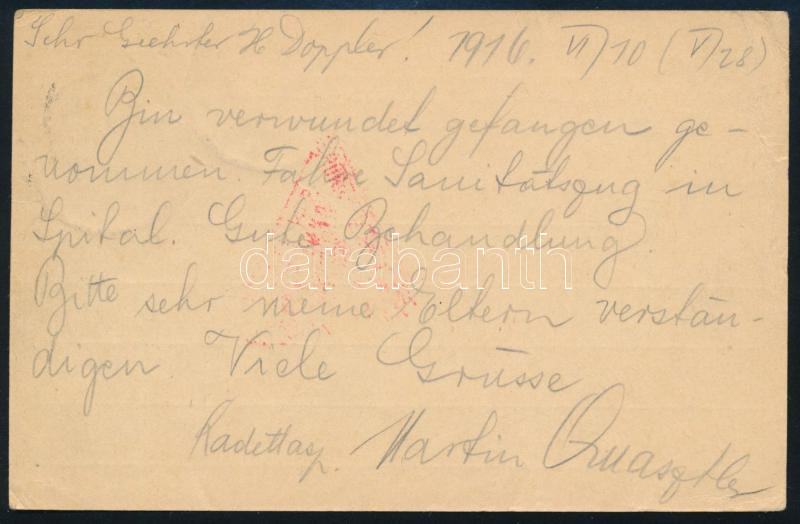 Sehr Geehrter H Doppler! 1916. VI/10 (V/28)
Bin verwundet gefangen ge-
nommen. Fahre Sanitätszug in
Spital. Gute Behandlung.
darabanth
Bitte sehr meine Eltern verstän-
digen. Viele Grüsse
Kadettasp. Martin